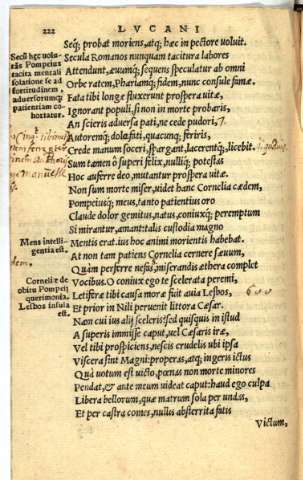 222 LVCANI
Seq; probat moriens, atq; hæc in pectore voluit.
Secula Romanos nunquam tacitura labores
Attendunt, ævumq; sequens speculatur ab omni
Orbe ratem, Phariamq; fidem, nunc consule famæ.
Fata tibi longæ fluxerunt prospera vitæ,
Ignorant populi, si non in morte probaris,
An scieris adversa pati, ne cede pudori,
Autoremq; dole fati, quacunq; feriris,
Crede manum soceri, spargant, lacerentq́; licebit.
Sum tamen ô superi felix, nulliq; potestas
Hoc auferre deo, mutantur prospera vitæ.
Non fum morte miser, videt hanc Cornelia cædem,
Pompeiusq; meus, tanto patientius oro
Claude dolor gemitus, natus, coniuxq́; peremptum
Si mirantur, amant: talis custodia magno
Mentis erat. ius hoc animi morientis habebat.
At non tam patiens Cornelia cernere sævum,
Quàm perferre nefas, miserandis æthera complet
Vocibus. O coniux ego te scelerata peremi,
Letiferæ tibi causa moræ fuit avia Lesbos,
Et prior in Nili pervenit littora Cæsar.
Nam cui ius alij sceleris: sed quisquis in istud
A superis immisse caput, vel Cæsaris iræ,
Vel tibi prospiciens, nescis crudelis ubi ipsa
Viscera sint Magni: properas, atq; ingeris ictus
Quà votum est victo, pœnas non morte minores
Pendat, & ante meum videat caput: haud ego culpa
Libera bellorum, quæ matrum sola per undas,
Et per castra comes, nullis absterrita fatis
Victum,
Secũ hęc volu-
tās Pompeius
tacita mentali
solatione se ad
fortitudinem,
adversorumq;
patientiam co-
hortatur.
Mens intelli-
gentia est.
Corneliæ de
obitu Pompeij
querimonia.
Lesbos insula
est.
600